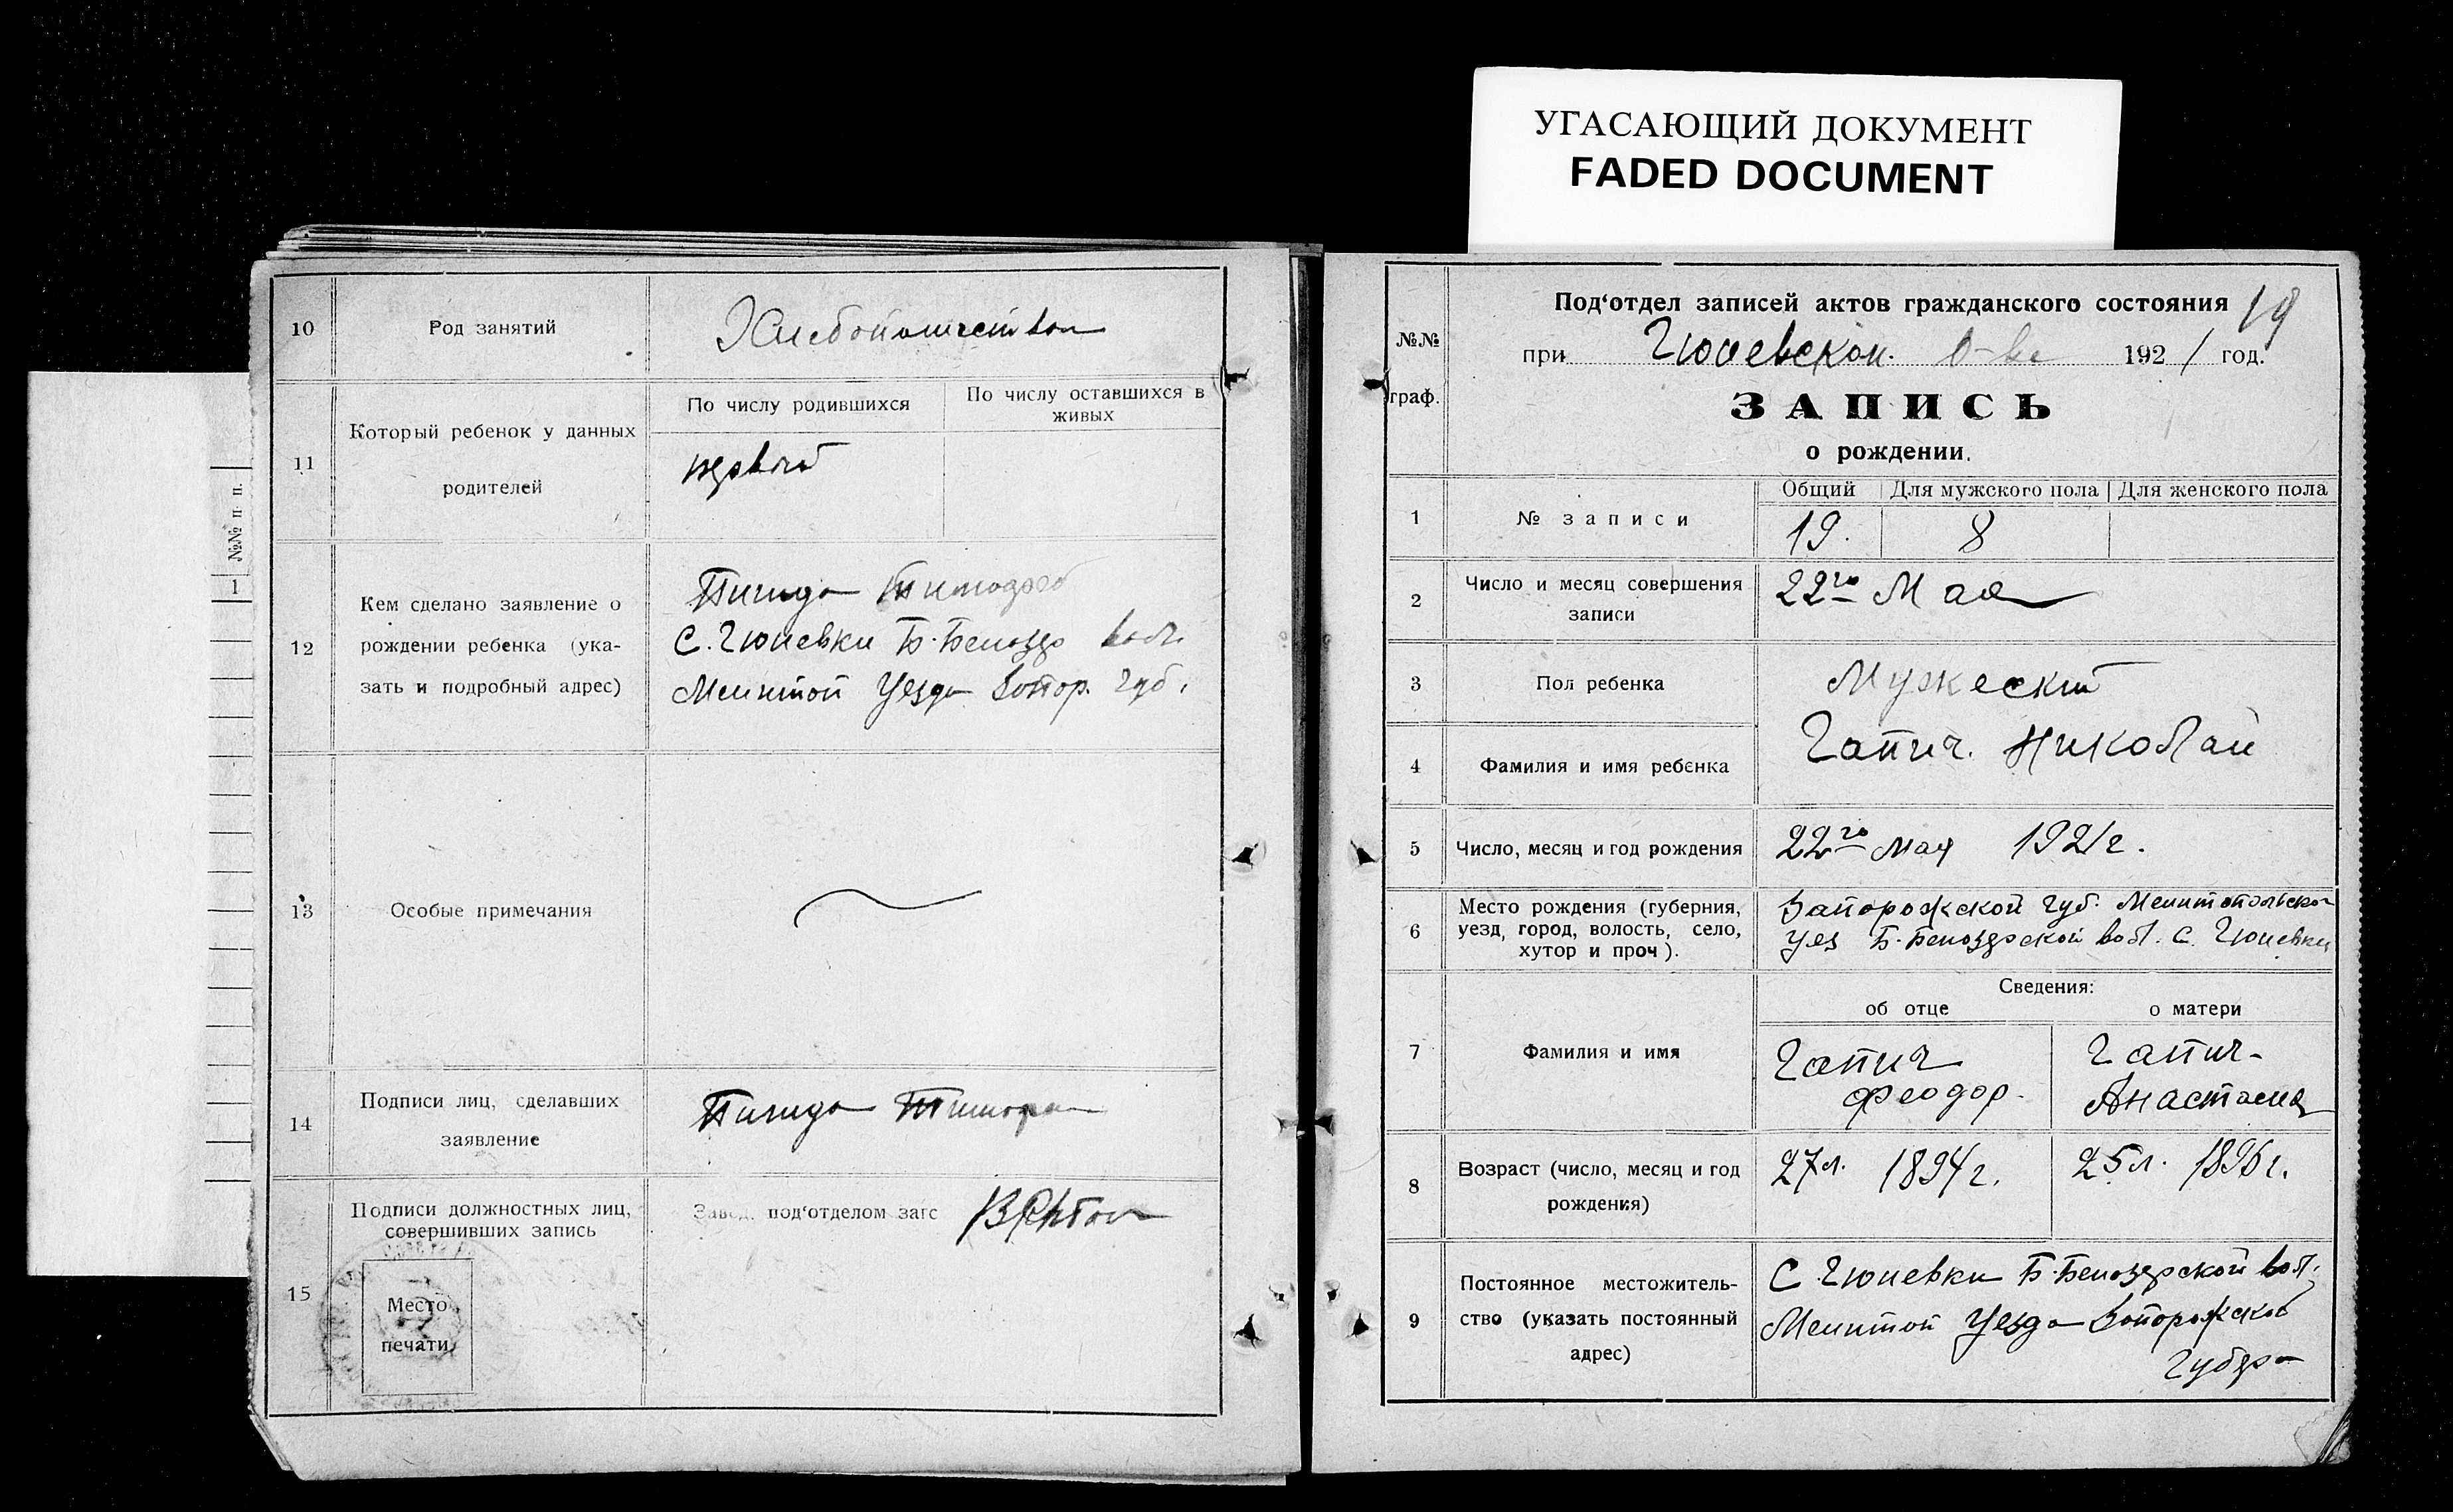 УГАСАЮЩИЙ ДОКУМЕНТ
FADED DOCUMENT
10
Род занятий
Хлебопашеством
11
Который ребенок у данных
родителей
По числу родившихся
По числу оставшихся в
живых
первый
12
Кем сделано заявление о
рождении ребенка (ука-
зать и подробный адрес)
с. Гюневки Б.-Белозер вол.
Мелитоп Уезда Запор. губ.
13
Особые примечания
14
Подписи лиц, сделавших
заявление
15
Подписи должностных лиц,
совершивших запись
Завед. под‘отделом загс
Место
печати
№№ п. п.
1
19
№№
граф.
Под‘отдел записей актов гражданского состояния
при Гюневском 1921 год.
ЗАПИСЬ
о рождении.
1
№ записи
Общий
Для мужского пола
Для женского пола
19.
8
2
Число и месяц совершения
записи
22го Мая
3
Пол ребенка
Мужеский
4
Фамилия и имя ребенка
Гапич. Николай
5
Число, месяц и год рождения
22го мая 1921 г.
6
Место рождения (губерния,
уезд, город, волость, село,
хутор и проч).
Запорожской губ. Мелитопольског
Уез Б.-Белозерской вол. с. Гюневки
Сведения:
об отце
о матери
7
Фамилия и имя
Гапич
Феодор.
Гапич
Анастасия
8
Возраст (число, месяц и год
рождения)
27 л. 1894 г.
25 л. 1896 г.
9
Постоянное местожитель-
ство (указать постоянный
адрес)
С. Гюневки Б.-Белозерской вол.
Мелитоп Уезда Запорожской
Губер